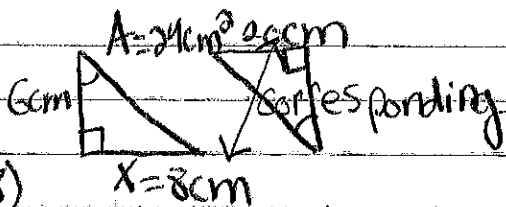 A=24cm² 20cm
6cm
corresponding
x=8cm